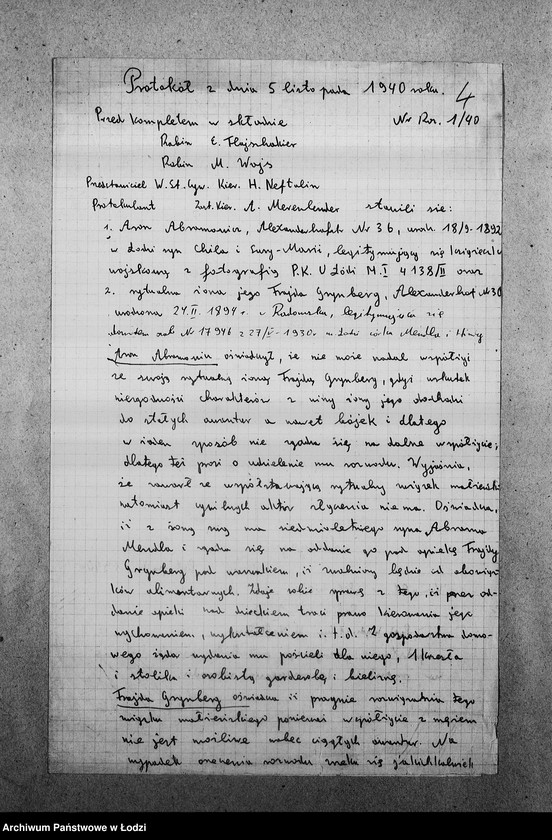 Protokół z dnia 5 listopada 1940 roku. 4
Przed kompletem w składzie Nr Roz. 1/40
Rabin E. Flajszhakier
Rabin M. Wajs
Przedstawiciel W. St. Cyw. Kier. H. Neftalin
Protokulant Zast. Kier. A. Merenlender stawili się:
1. Aron Abramowicz, Alexanderhofstr Nr 36, urodz. 18/9-1892
w Łodzi syn Chila i Sury-Marii, legitymujący się książeczką
wojskową z fotografią P.K.U Łódź M.I 4138/II oraz
2. rytualna żona jego Frajda Grynberg, Alexanderhof N 30
urodzona 24.II.1894 r. w Radomsku, legitymująca się
dowodem osob Nr 17946 z 27/V-1930 r. m. Łodzi córka Mendla i
Aron Abramowicz oświadczył, że nie może nadal współżyć
ze swoją rytualną żoną Frajdą Grynberg, gdyż wskutek
niezgodności charakterów z winy żony jego dochodzi
do stałych awantur a nawet bójek i dlatego
w żaden sposób nie zgadza się na dalsze współżycie;
dlatego też prosi o udzielenie mu rozwodu. Wyjaśnia,
że zawarł ze współstawającą rytualny związek małżeński
natomiast cywilnych aktów złączenia nie ma. Oświadcza,
iż z żoną swą ma siedmioletniego syna Abrama
Mendla i zgadza się na oddanie go pod opiekę Frajdy
Grynberg pod warunkiem, iż zwolniony będzie od obowiąz-
ków alimentarnych. Zdaje sobie sprawę z tego, iż przez od-
danie opieki nad dzieckiem traci prawo kierowania jego
wychowaniem, wykształceniem i t.d. Z gospodarstwa domo-
wego żąda wydania mu pościeli dla niego, 1 krzesła
i stolika i osobistą garderobę i bieliznę.
Frajda Grynberg oświadcza iż pragnie rozwiązania tego
związku małżeńskiego ponieważ współżycie z mężem
nie jest możliwe wobec ciągłych awantur. Na
wypadek orzeczenia rozwodu zrzeka się jakichkolwiek
Archiwum Państwowe w Łodzi